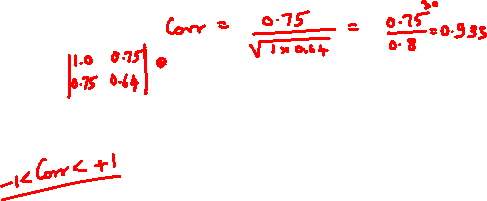 Corr = 0.75 / √1 × 0.64 = 0.75 / 0.8 = 0.935
30
|1.0 0.75|
|0.75 0.64|
-1 < Corr < +1